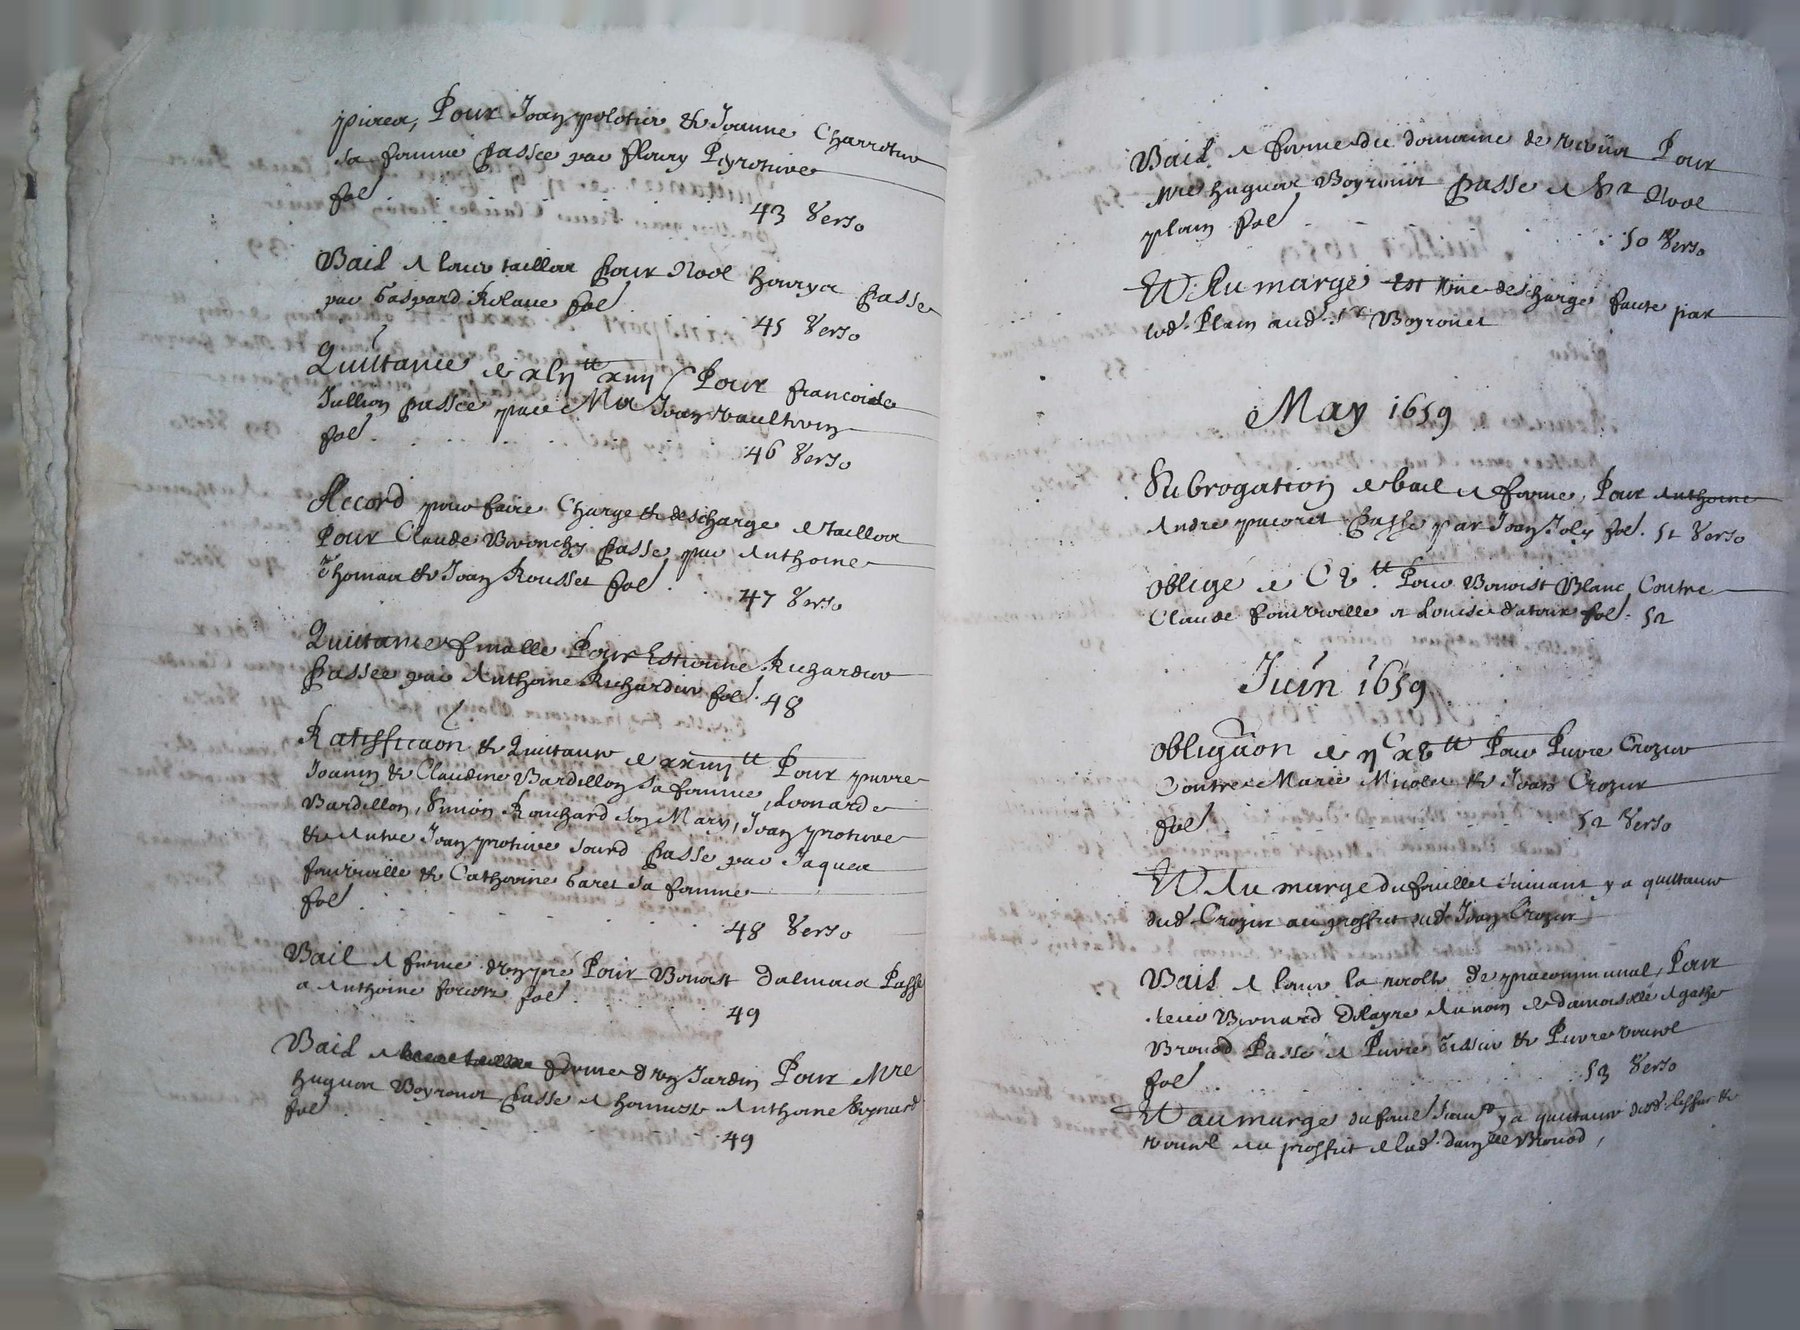 pieces, Pour Jean pelotier & Jeanne Charrotier
sa femme passée par fleury Peyrotine
fol 43 Verso
Bail a loier tailles pour Noel passé
par Gaspard Rolane fol
45 Verso
Quittance de xlij tt xiiij s Pour francoise
Jullien passée par Me Jean vaulhrin
fol
46 Verso
Accord pour faire Charge & descharge de tailles
Pour Claude passé par Anthoine
Thomas & Jean Rousset fol
47 Verso
Quittance finalle Pour Estienne Richardier
Passée par Anthoine Richardier fol 48
Ratifficaon & Quittance de xxiiij tt Pour pierre
Joanin & Claudine Bardillon sa femme, Leonarde
Bardillon, Simon Rouchard son Mary, Jean
& Autre Jean sourd passé par Jaques
fourville & Catherine Garet sa femme
fol
48 Verso
Bail a ferme d'un pré Pour Benoist Dalmais Passé
a Anthoine fol
49
Bail a ferme d'un Jardin Pour Mre
Hugues Boyronet passé a honneste Anthoine Reynard
fol
49
Bail a ferme du domaine de Pour
Mre hugues Boyronet passé a Sr Noel
plain fol
50 Verso
Au marge est une descharge faicte par
led. Plain aud. Sr Boyronet
May 1659
Subrogation de bail a ferme, Pour Anthoine
Andre pacoret passé par Jean Joly fol. 51 Verso
Obligé de C v tt Pour Benoist Blanc Contre
Claude fourville & Louise fol. 52
Juin 1659
Obligaon de ij C x v tt Pour Pierre Crozier
Contre Marie Micolet & Jean Crozier
fol
52 Verso
Au marge du feuillet suivant y a quittance
dud. Crozier au proffit dud. Jean Crozier
Bail a loier la recolte de pré communal, Pour
sieur Bernard Delayre au nom de damoiselle Agathe
Brouod Passé a Pierre Tissier & Pierre
fol
53 Verso
au marge du feuil. suivt y a quittance dud. &
au proffit de lad. damlle Brouod,